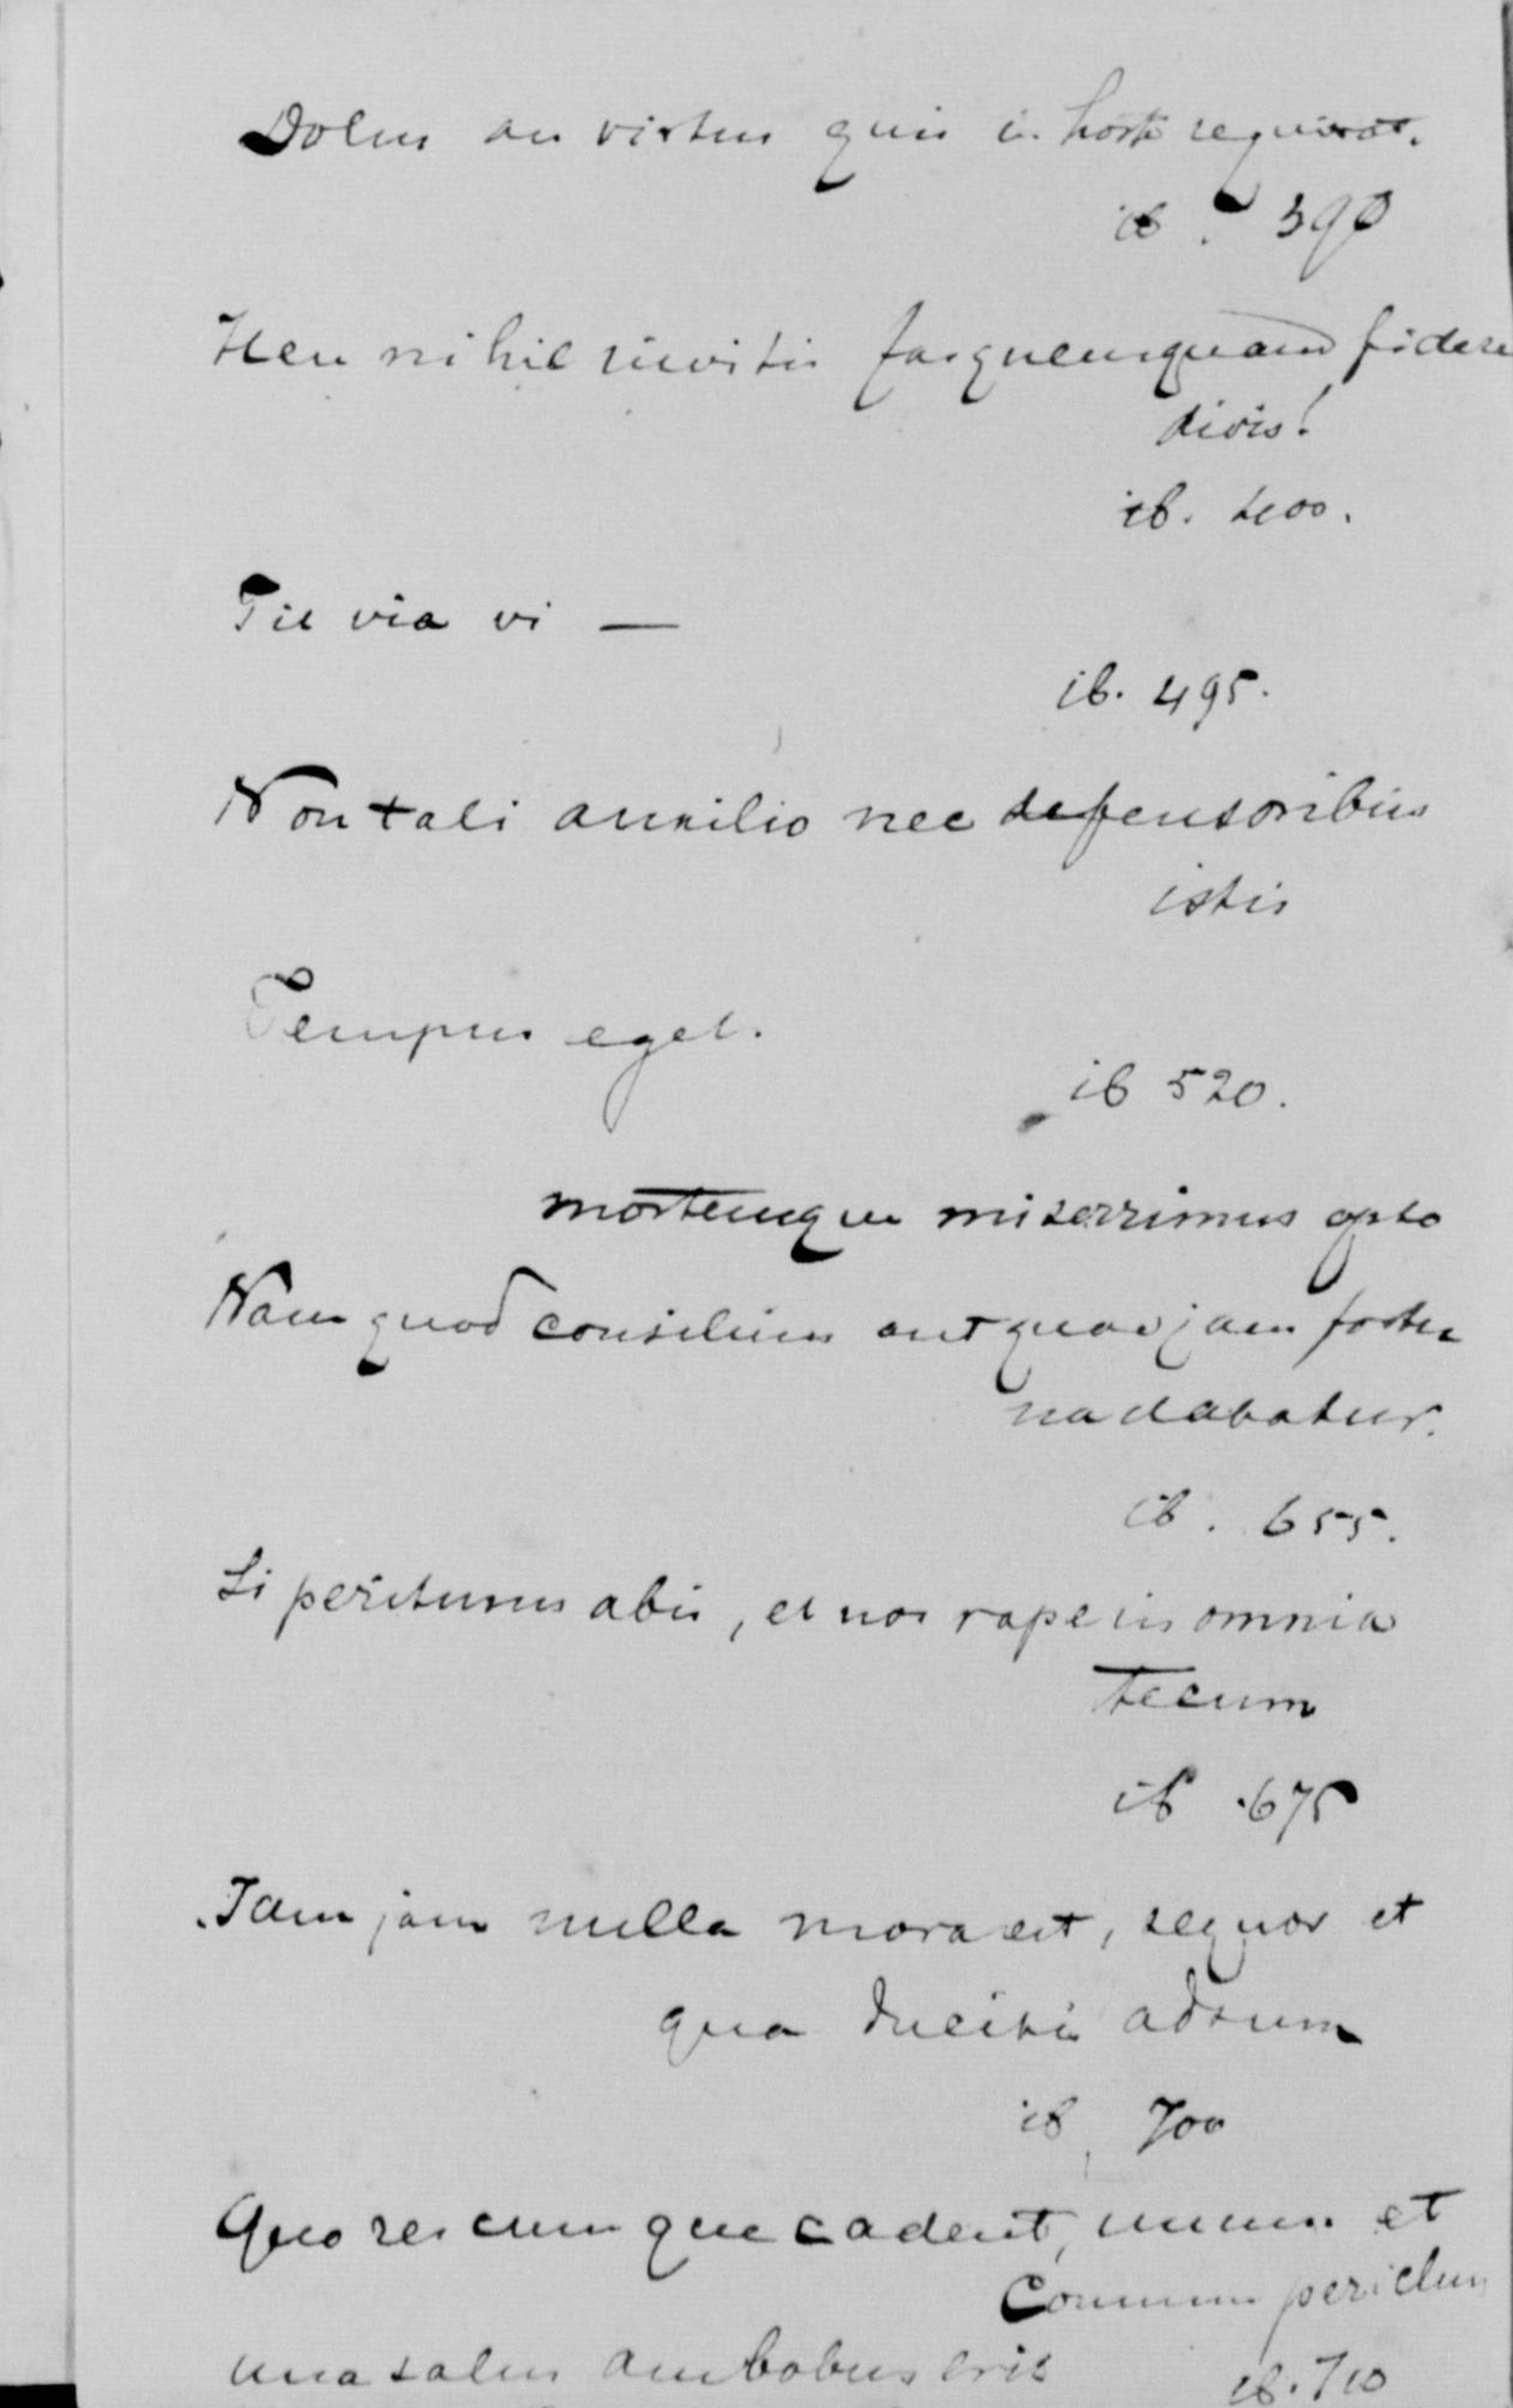 Dolus an virtus quis in hoste requirat.
ib. 390
Heu nihil invitis fas quemquam fidere
divis!
ib. 400.
Fit via vi —
ib. 495.
Non tali auxilio nec defensoribus
istis
Tempus eget.
ib 520.
mortemque miserrimus opto
Nam quod consilium aut quae jam fortu
na dabatur.
ib. 655.
Si periturus abis, et nos rape in omnia
tecum
ib. 675
Jam jam nulla mora est, sequor et
qua ducitis adsum
ib, 700
Quo res cumque cadent, unum et
Commune periclum
una salus ambobus erit
ib. 710